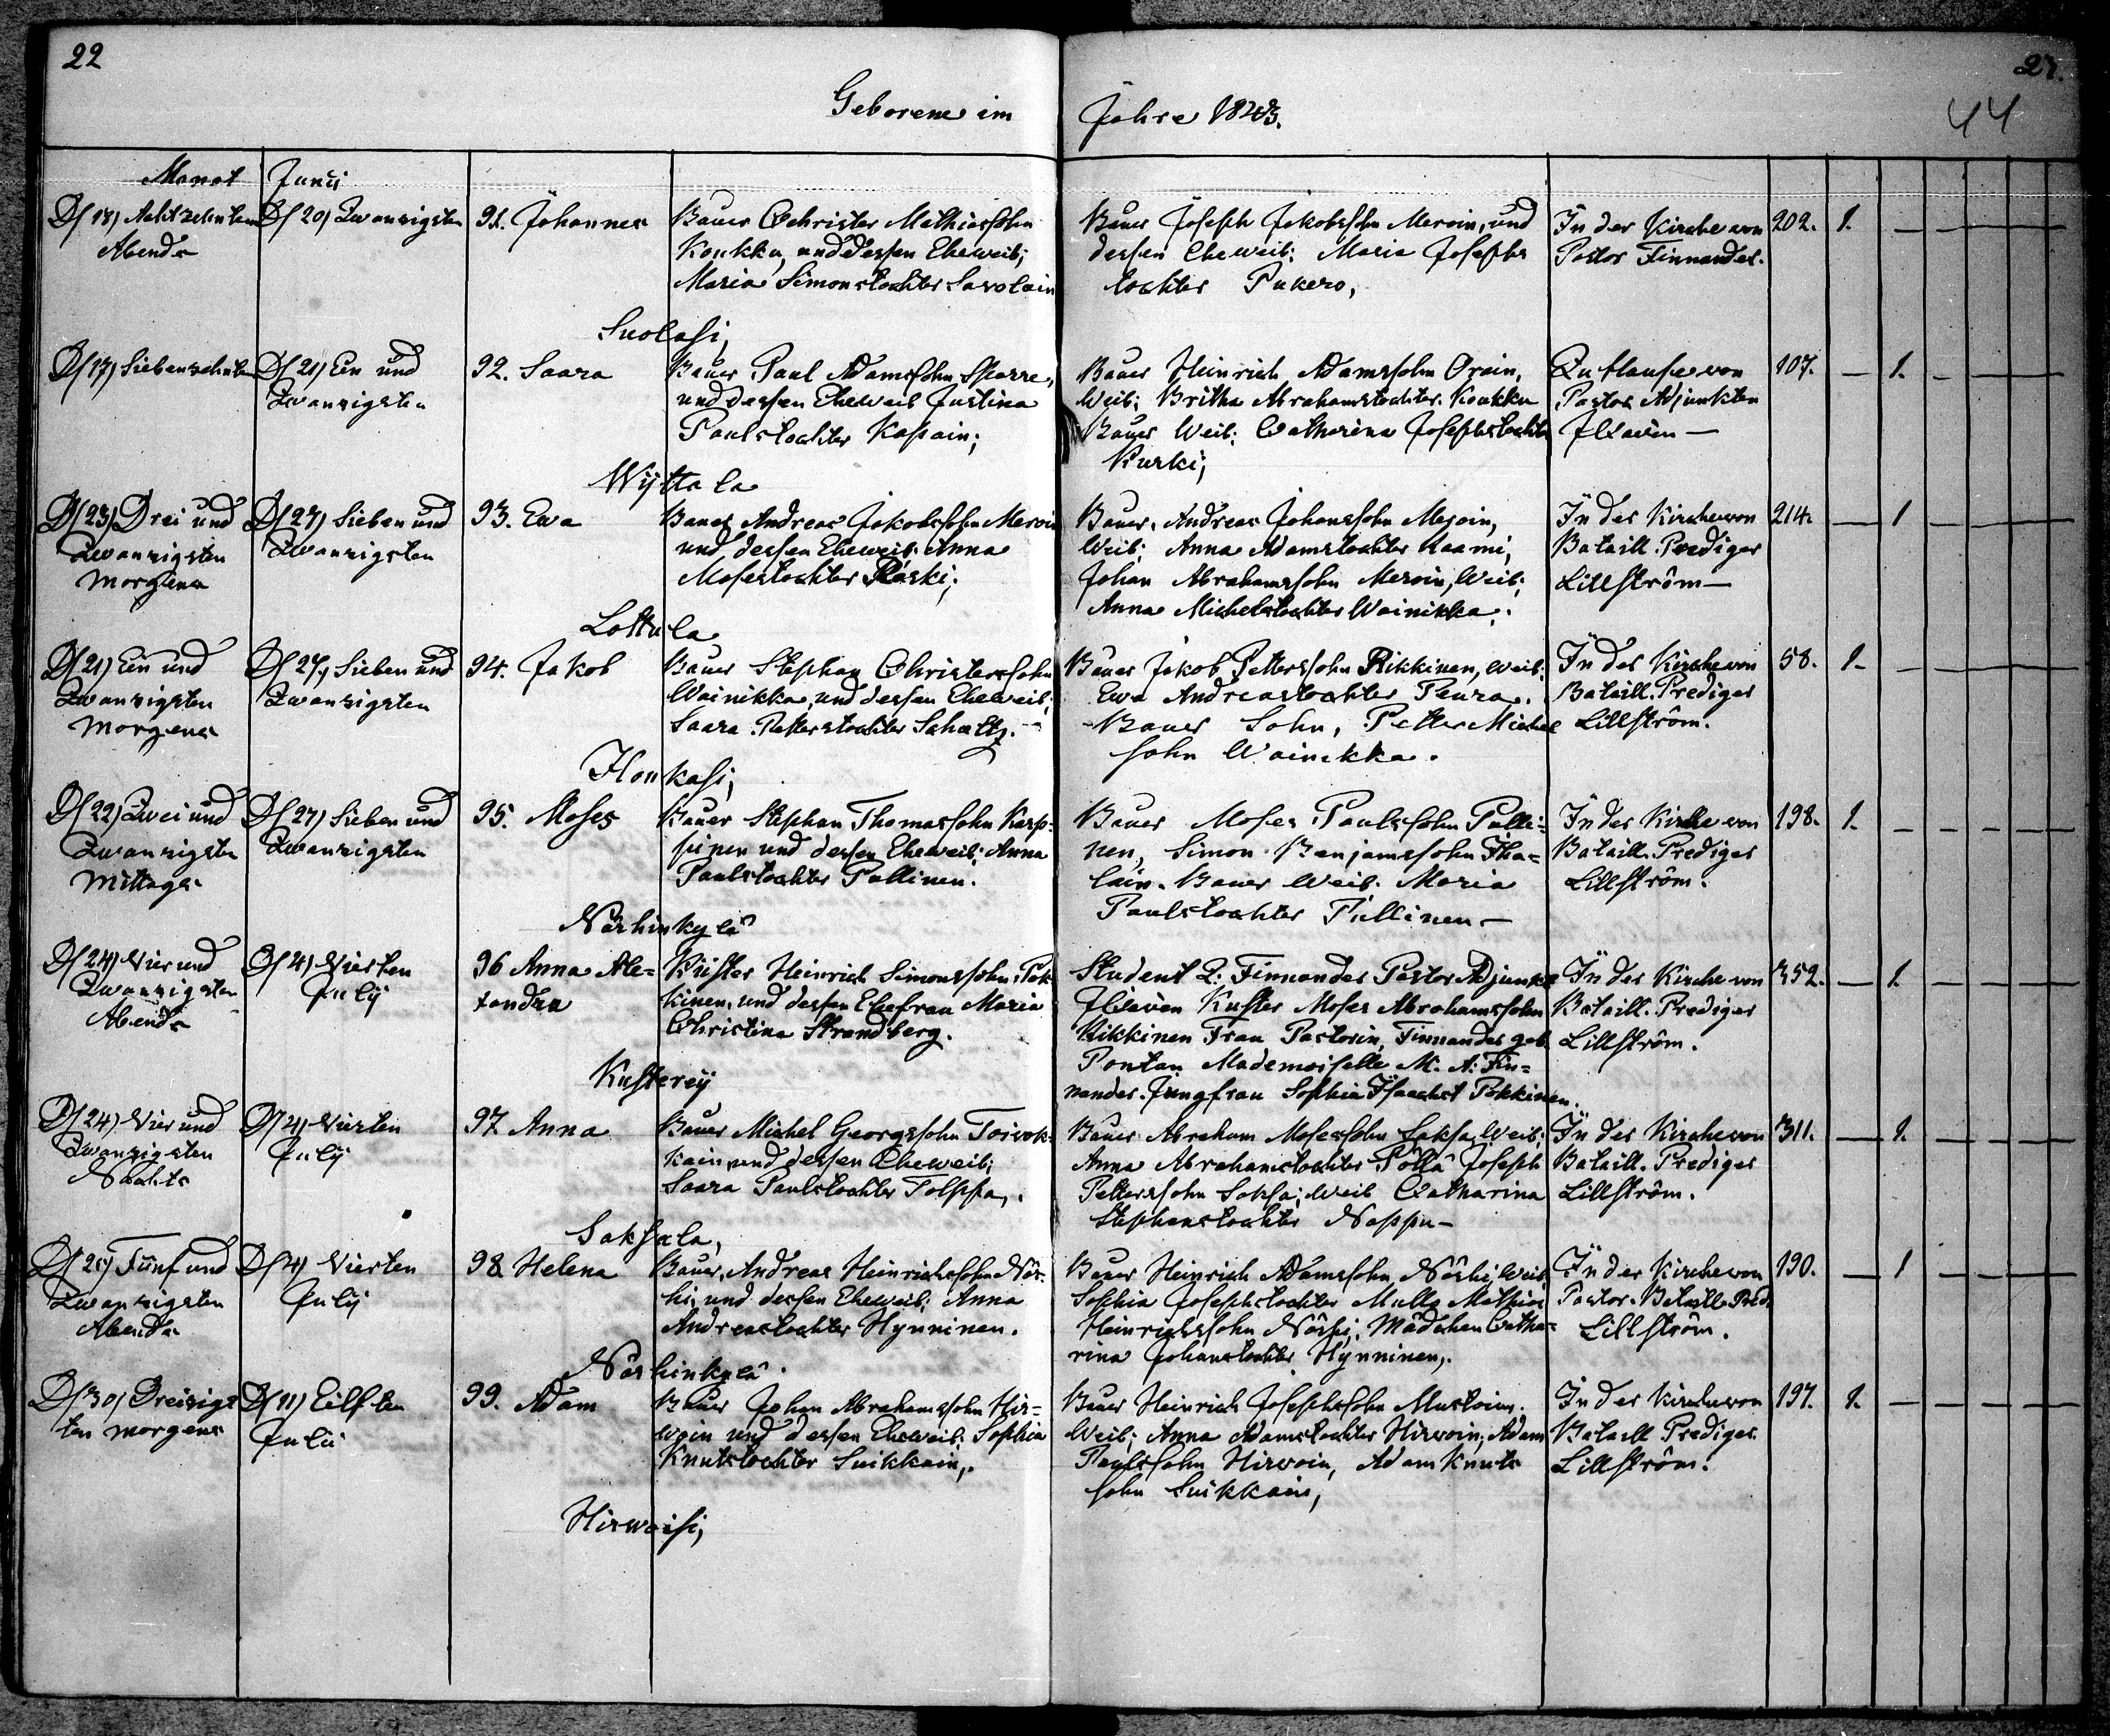 22
27.
44
Geborene im Jahre 1843.
Monat Junii
D/18) Achtzehnten
Abends
D/20) Zwanzigsten
91. Johannes
Bauer Christer Mathiassohn
Koukku, und dessen Eheweib;
Maria Simonstochter Savolain
Bauer Joseph Jakobssohn Meroin, und
dessen Eheweib: Maria Josephs
tochter Pukero,
In der Kirche von
Pastor Finnander.
202. 1. — — — — —
Suolasi,
D/17) Siebenzehnten
D/21) Ein und
Zwanzigsten
92. Saara
Bauer Paul Adamssohn Sparre,
und dessen Eheweib Justina
Paulstochter Kapain;
Bauer Heinrich Adamssohn Orain,
Weib; Britha Abrahamstochter Koukku
Bauer Weib; Catharina Josephstochter
Kurki;
Zu Hause von
Pastor Adjunkten
Ilwain —
107. — 1. — — — —
Wijttala
D/23) Drei und
Zwanzigsten
Morgens
D/27) Sieben und
Zwanzigsten
93. Ewa
Bauer Andreas Jakobssohn Meroin
und dessen Eheweib: Anna
Mosestochter Räski;
Bauer, Andreas Johanssohn Meroin,
Weib; Anna Adamstochter Naami,
Johan Abrahamssohn Meroin, Weib;
Anna Michelstochter Wainikka.
In der Kirche von
Bataill. Prediger
Lillström —
214. — 1 — — — —
Lottula
D/21) Ein und
Zwanzigsten
Morgens
D/27) Sieben und
Zwanzigsten
94. Jakob
Bauer Stephan Christerssohn
Wainikka, und dessen Eheweib;
Saara Petterstochter Schultz.
Bauer Jakob Petterssohn Rikkinen, Weib:
Ewa Andreastochter Peura.
Bauer Sohn, Petter Michel
sohn Wainikka.
In der Kirche von
Bataill. Prediger
Lillström.
58. 1. — — — — —
Honkasi;
D/22) Zwei und
Zwanzigsten
Mittags
D/27) Sieben und
Zwanzigsten
95. Moses
Bauer Stephan Thomassohn Karp-
pinen und dessen Eheweib; Anna
Paulstochter Pullinen.
Bauer Moses Paulssohn Pulli-
nen, Simon Benjamssohn Iha-
lain. Bauer Weib. Maria
Paulstochter Pullinen —
In der Kirche von
Bataill. Prediger
Lillström.
198. 1. — — — — —
Närhinkylä
D/24) Vier und
Zwanzigsten
Abends
D/4) Vierten
Julij
96 Anna Ale-
xandra
Küster Heinrich Simonssohn Pok-
kinen, und dessen Ehefrau Maria
Christina Strandberg.
Student L: Finnander Pastor Adjunkt
Ilwain Kuster Moses Abrahamssohn
Rikkinen Frau Pastorin, Finnander geb
Pontan Mademoiselle M. A: Fin-
nander. Jungfrau Sophia Isaachst Pokkinen.
In der Kirche von
Bataill. Prediger
Lillström.
352. — 1. — — — —
Kusterej
D/24) Vier und
Zwanzigsten
Nachts
D/4) Vierten
Julij
97. Anna
Bauer Michel Georgssohn Toivok-
kain und dessen Eheweib;
Saara Paulstochter Tolppa,
Bauer Abraham Mosessohn Saksa, Weib;
Anna Abrahamstochter Pöllä Joseph
Petterssohn Saksa; Weib Catharina
Stephanstochter Noppu —
In der Kirche von
Bataill. Prediger
Lillström.
311. — 1. — — — —
Saksala,
D/25) Fünf und
Zwanzigsten
Abends
D/4) Vierten
Julij
98 Helena
Bauer, Andreas Heinrichssohn När-
hi, und dessen Eheweib; Anna
Andreastochter Hynninen.
Bauer Heinrich Adamssohn, Närhi; Weib
Sophia Josephstochter Mulla Mathias
Heinrichssohn Närhi; Mädchen Catha-
rina Johanstochter Hynninen,.
In der Kirche von
Pastor. Bataill Pred.
Lillström.
190. — 1 — — — —
Närhinkylä.
D/30) Dreisigs
ten morgens
D/11) Eilften
Julii
99. Adam
Bauer Johan Abrahamssohn Hir-
woin und dessen Eheweib; Sophia
Knutstochter Suikkain,.
Bauer Heinrich Josephssohn Mustoinn.
Weib; Anna Adamstochter Hirwoin; Adam
Paulssohn Hirwoin, Adam Knuts
sohn Suikkain,
In der Kirche von
Bataill Prediger
Lillström.
197. 1. — — — — —
Hirwoisi;